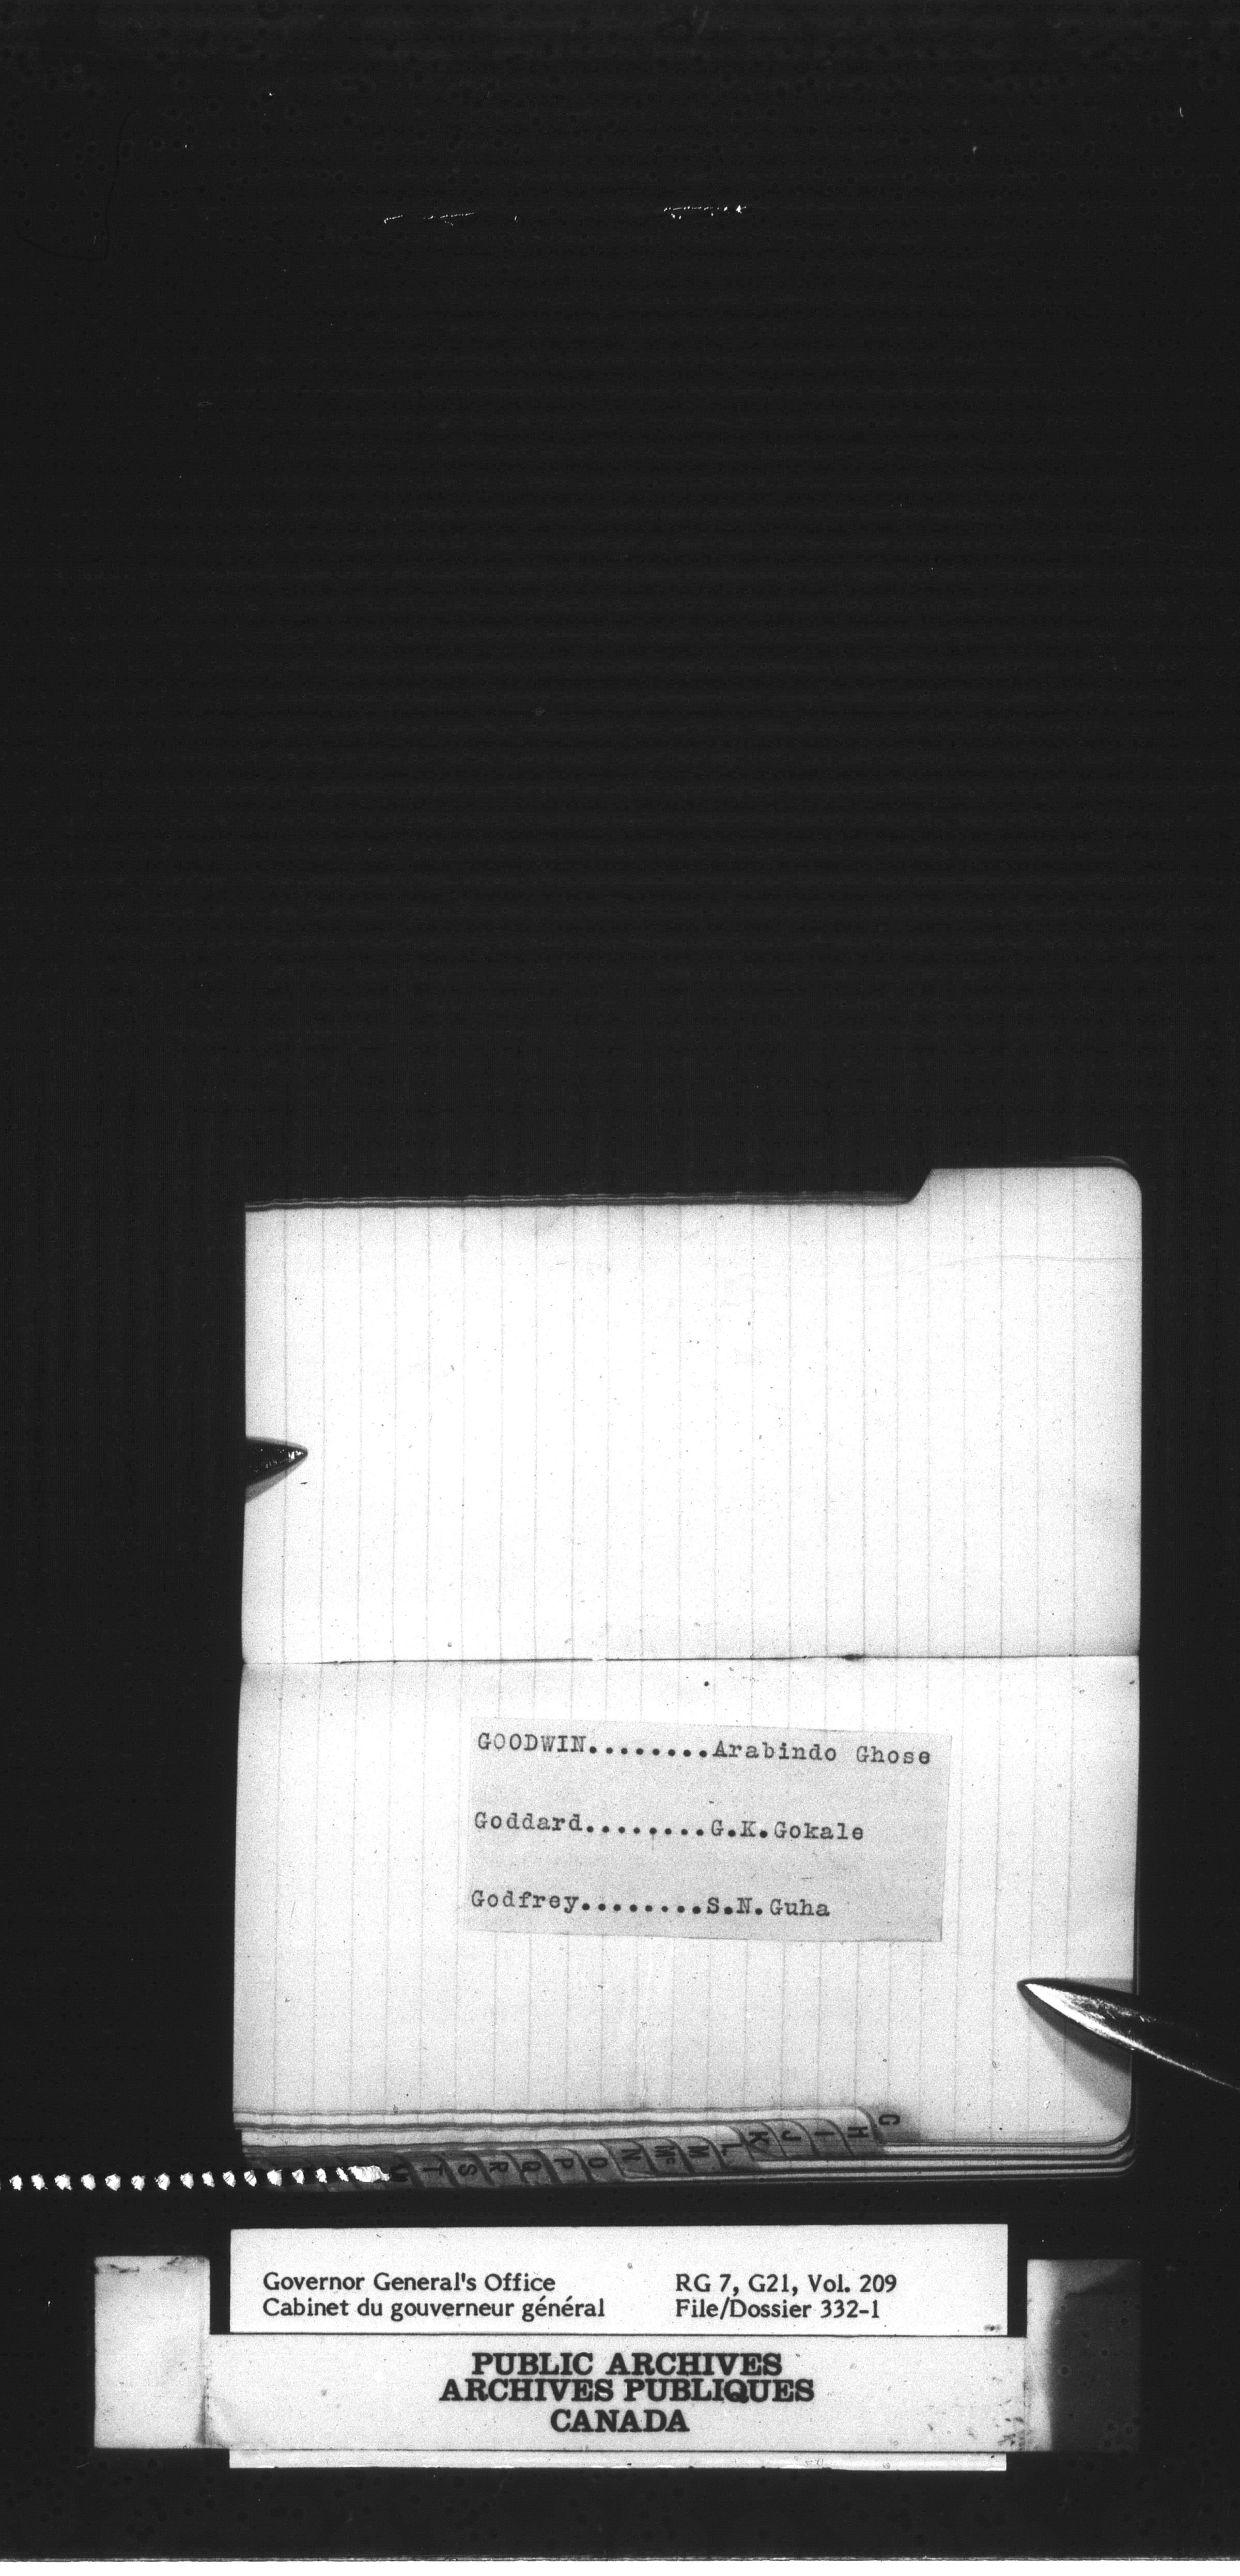 GOODWIN........Arabindo Ghose
Goddard........G.K.Gokale
Godfrey........S.N.Guha
G
H
I
J
K
L
M
Mc
N
O
P
Q
R
S
T
Governor General's Office
Cabinet du gouverneur général
RG 7, G21, Vol. 209
File/Dossier 332-1
PUBLIC ARCHIVES
ARCHIVES PUBLIQUES
CANADA